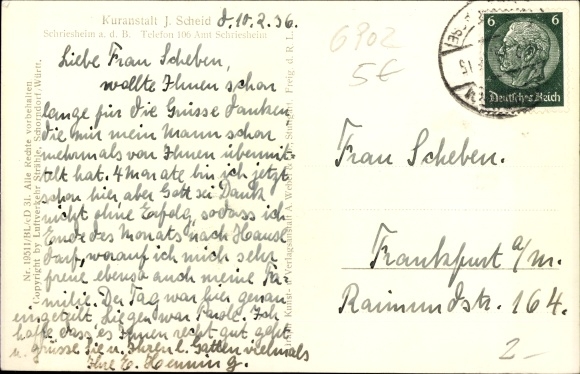 Kuranstalt J. Scheid
d. 10.2.36.
Schriesheim a. d. B. Telefon 106 Amt Schriesheim
Liebe Frau Scheben,
wollte Ihnen schon
lange für die Grüsse danken
die mir mein Mann schon
mehrmals von Ihnen übermit-
telt hat. 4 Monate bin ich jetzt
schon hier, aber Gott sei Dank
nicht ohne Erfolg, sodass ich
Ende des Monats nach Hause
darf, worauf ich mich sehr
freue ebenso auch meine Fa-
milie. Der Tag war hier genau
eingeteilt, liegen war Parole. Ich
hoffe dass es Ihnen recht gut geht
u. grüsse Sie u. Ihren l. Gatten vielmals
Ihre E. Henning.
Nr. 10511/BL/cD 31. Alle Rechte vorbehalten
Copyright by Luftverkehr Strähle, Schorndorf/Württ.
Kunst- u. Verlagsanstalt A. Weber Stuttgart. Freig. d. R. L.
6902
5€
6 6
Deutsches Reich
Frau Scheben.
Frankfurt a/m.
Raimundstr. 164.
2-